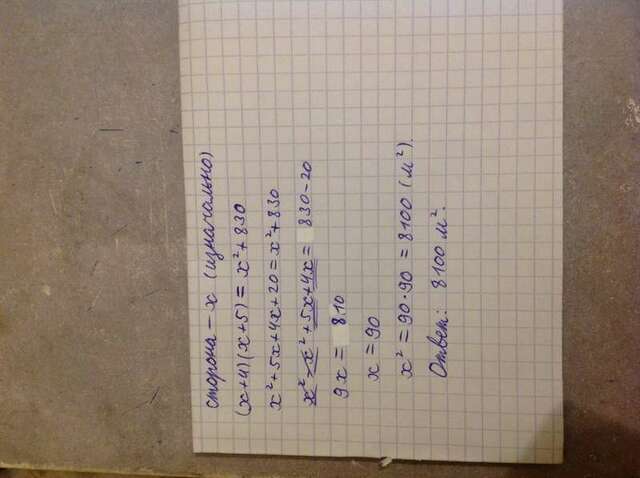 сторона – x (изначально)
(x+4)(x+5) = x²+830
x²+5x+4x+20 = x²+830
x²-x²+5x+4x = 830-20
9x = 810
x = 90
x² = 90·90 = 8100 (м²).
Ответ: 8100 м².